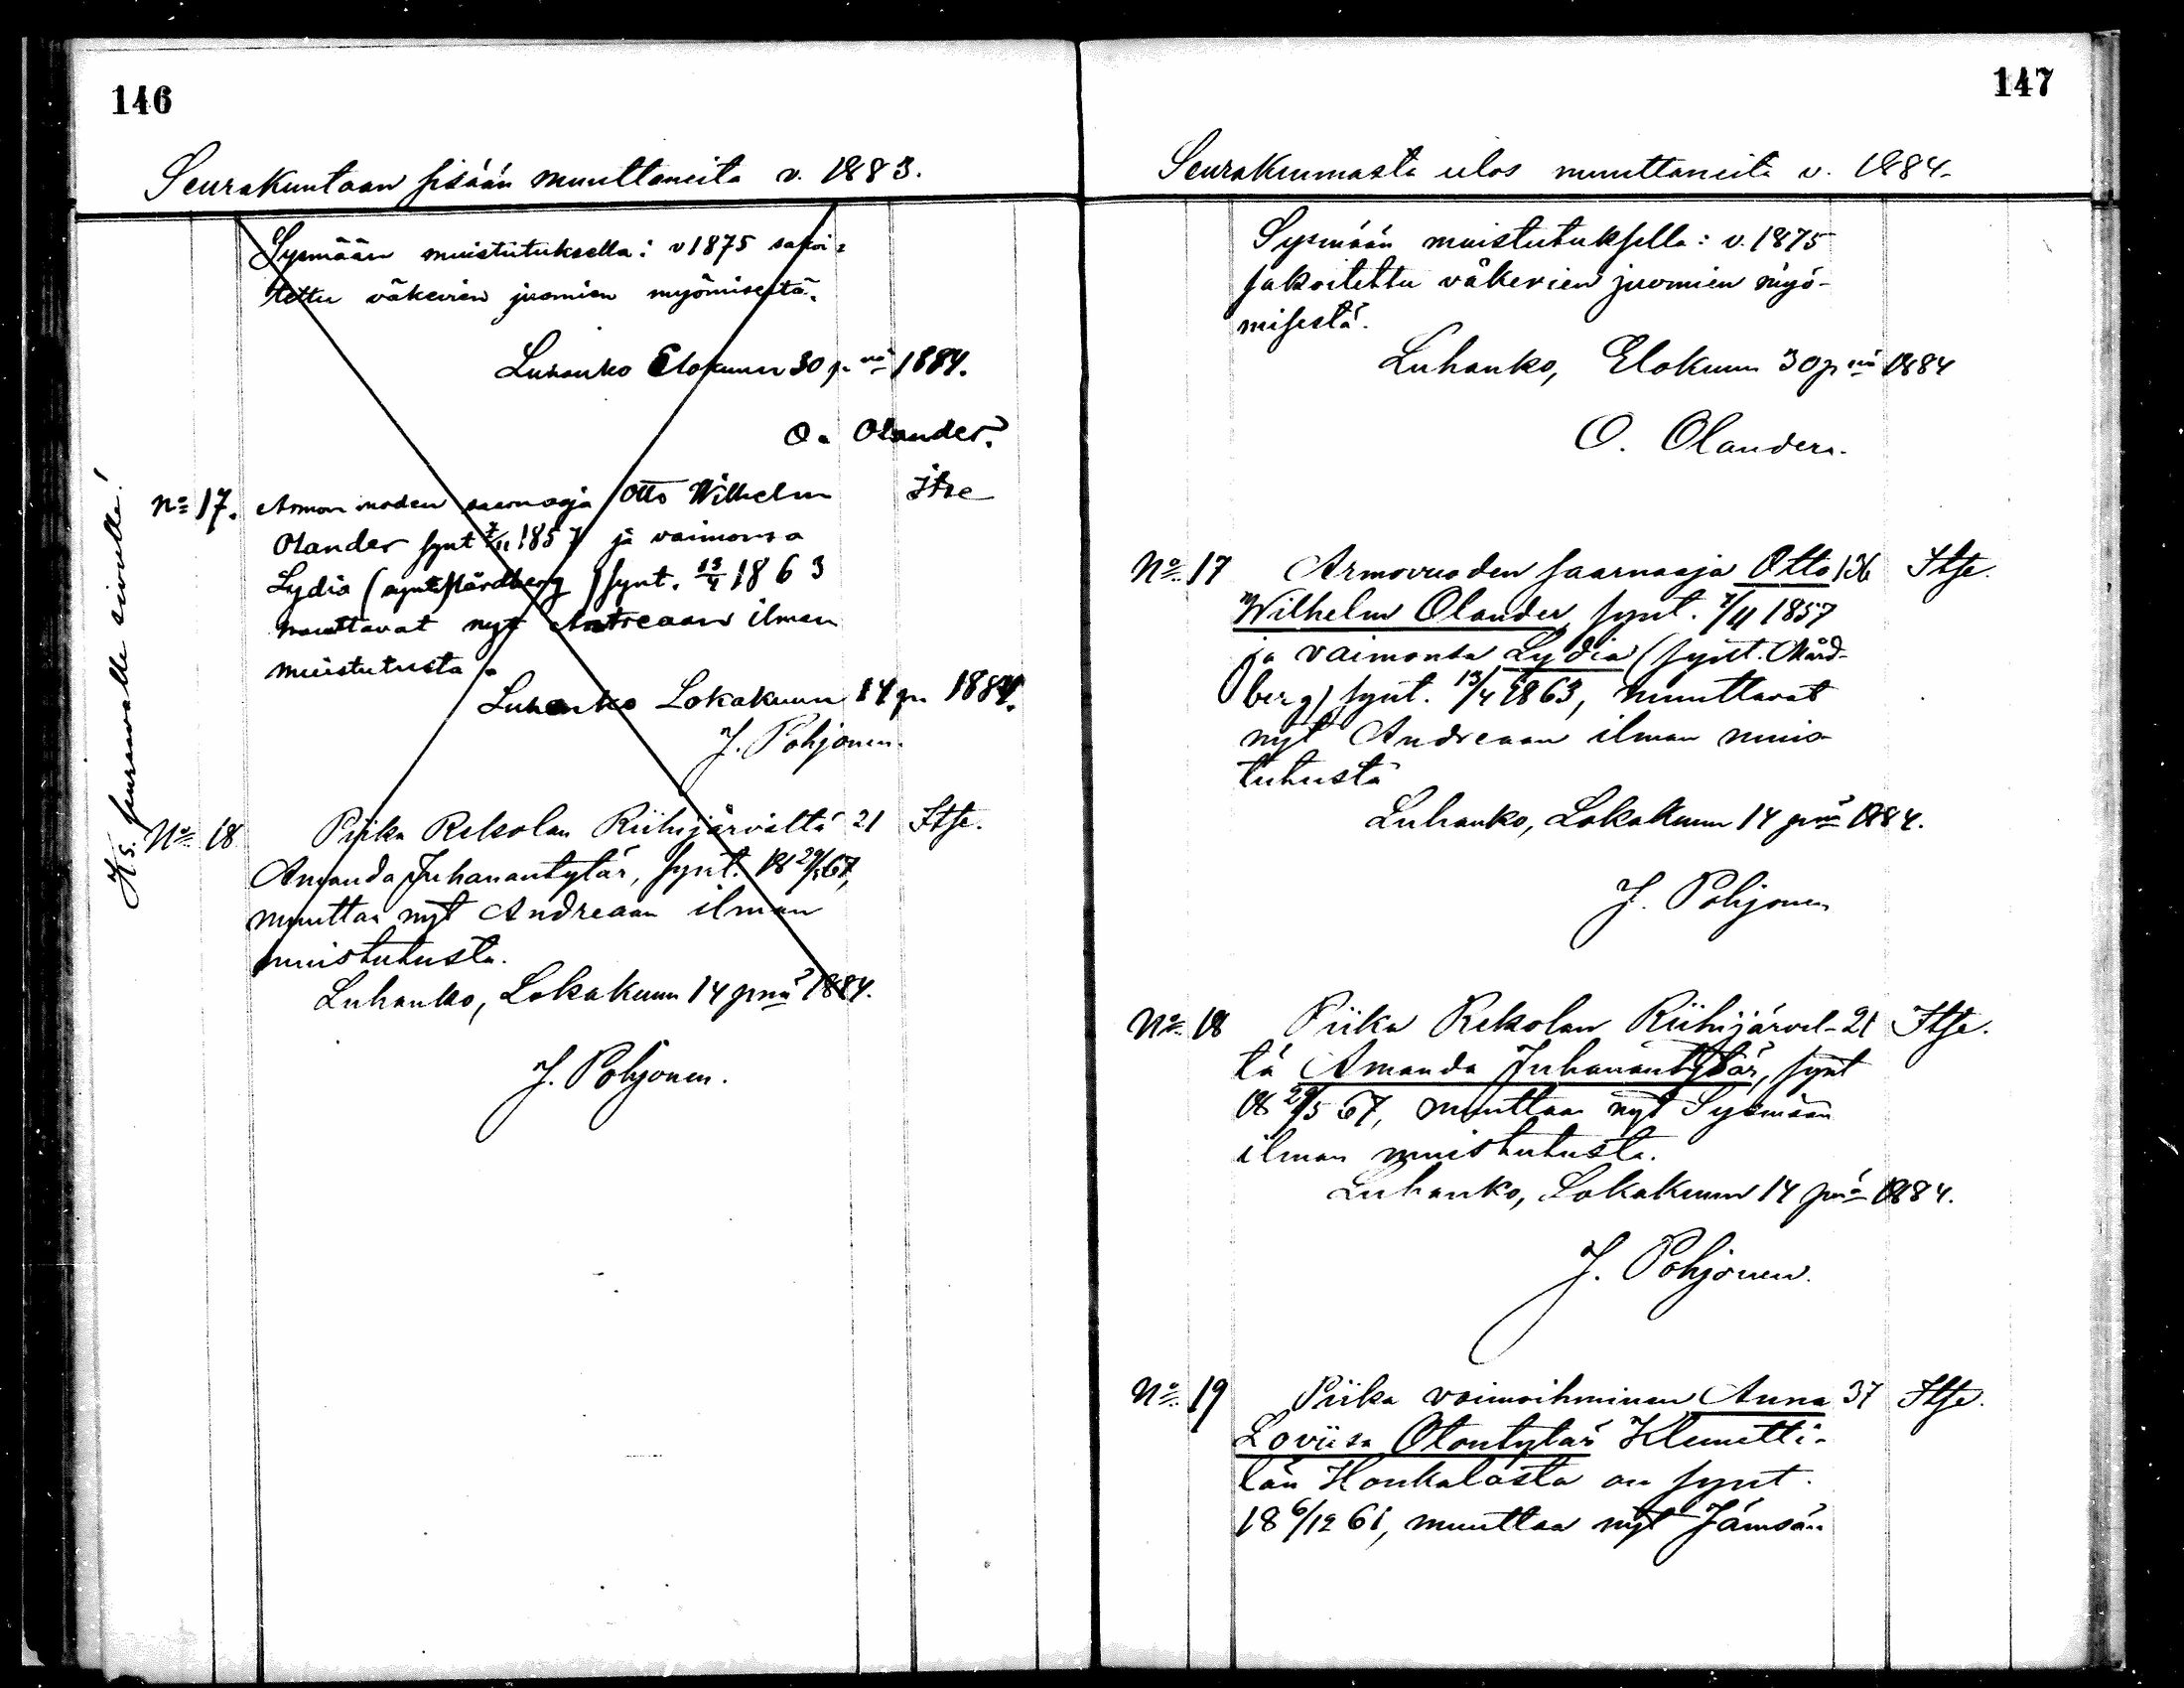 146
Seurakuntaan sisään muuttaneita v. 1883.
Sysmään muistutuksella: v 1875 sakoi=
tettu väkevien juomien myömisestä.
Luhanko Elokuun 30 p nä 1884.
O. Olander.
No 17. Armon vuoden saarnaaja Otto Wilhelm Itse
Olander synt 7/11 1857 ja vaimonsa
Lydia (synt. Mårdberg) synt. 13/4 1863
muuttavat nyt Antreaan ilman
muistutusta.
Luhanko Lokakuun 14 p. 1884.
J. Pohjonen.
Ks. seuraavalle sivulle!
No 18 Piika Rekolan Riihijärveltä 21 Itse.
Amanda Juhanantytär, synt. 18 29/5 67,
muuttaa nyt Andreaan ilman
muistutusta.
Luhanko, Lokakuun 14 pnä 1884.
J. Pohjonen.
147
Seurakunnasta ulos muuttaneita v. 1884.
Sysmään muistutuksella: v. 1875
sakoitettu väkevien juomien myö-
misestä.
Luhanko, Elokuun 30 p nä 1884
O. Olander.
No 17 Armovuoden saarnaaja Otto 136 Itse.
Wilhelm Olander, synt. 7/11 1857
ja vaimonsa Lydia (synt. Mård-
berg) synt. 13/4 1863, muuttavat
nyt Andreaan ilman muis-
tutusta
Luhanko, Lokakuun 14 pnä 1884.
J. Pohjonen
No 18 Piika Rekolan Riihijärvel- 21 Itse.
tä Amanda Juhanantytär, synt
18 29/5 67, muuttaa nyt Sysmään
ilman muistutusta.
Luhanko, Lokakuun 14 pnä 1884.
J. Pohjonen.
No 19 Piika vaimoihminen Anna 37 Itse.
Loviisa Otontytär Klemetti-
län Honkalasta on synt.
18 6/12 61, muuttaa nyt Jämsän